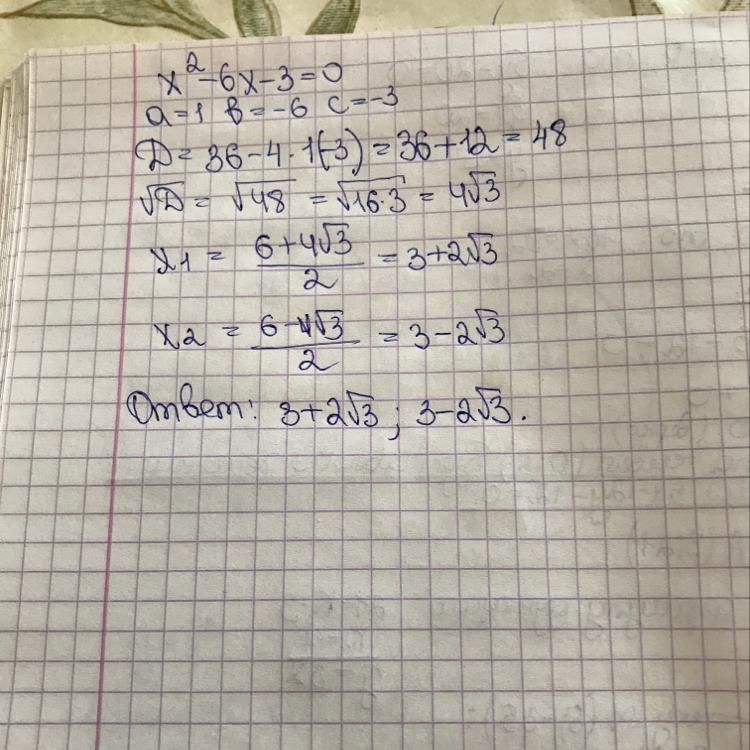 x²-6x-3=0
a=1 в=-6 c=-3
D=36-4·1(-3)=36+12=48
√D=√48=√16·3=4√3
x1=(6+4√3)/2=3+2√3
x2=(6-4√3)/2=3-2√3
Ответ: 3+2√3; 3-2√3.